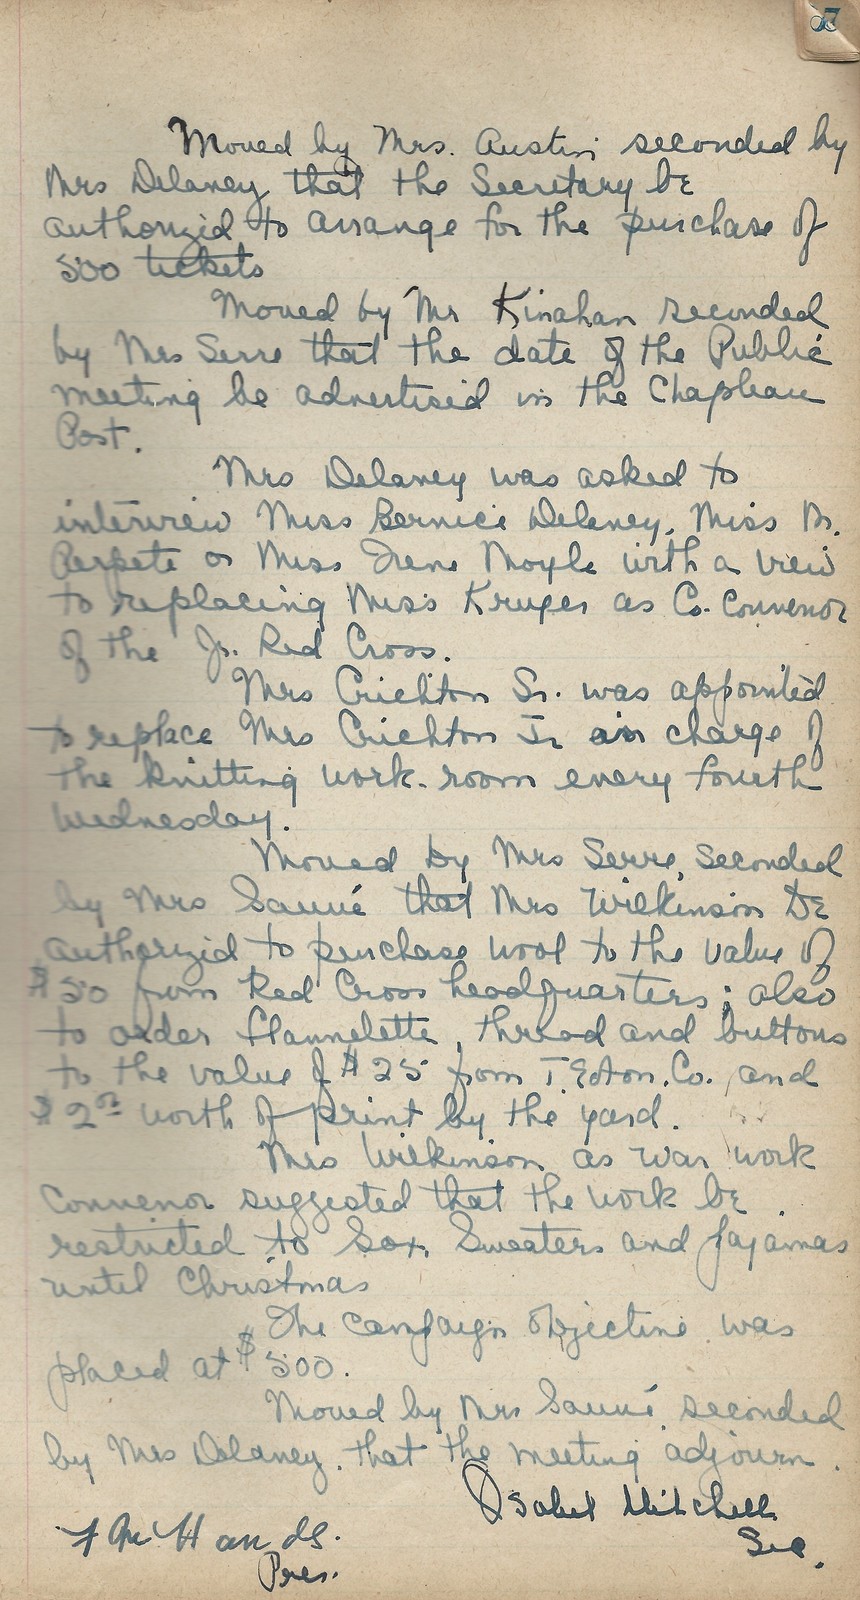 27
Moved by Mrs. Austin seconded by
Mrs Delaney that the Secretary be
authorized to arrange for the purchase of
500 tickets
Moved by Mr Kinahan seconded
by Mrs Serre that the date of the Public
meeting be advertised in the Chapleau
Post.
Mrs Delaney was asked to
interview Miss Bernice Delaney, Miss M.
Perpete or Miss Irene Moyle with a view
to replacing Miss Kruger as Co. Convenor
of the Jr. Red Cross.
Mrs Crichton Sr. was appointed
to replace Mrs Crichton Jr in charge of
the knitting work-room every fourth
Wednesday.
Moved by Mrs Serre, seconded
by Mrs Sauvé that Mrs Wilkinson be
authorized to purchase wool to the value of
$50 from Red Cross headquarters; also
to order flannelette, thread and buttons
to the value of $25 from T. Eaton. Co. and
worth of print by the yard.
Mrs Wilkinson as war work
Convenor suggested that the work be
restricted to Sox, Sweaters and pajamas
until Christmas
The campaign objective was
placed at $500.
Moved by Mrs Sauvé, seconded
by Mrs Delaney, that the meeting adjourn.
Isabel Mitchell
Sec.
Hands.
Pres.